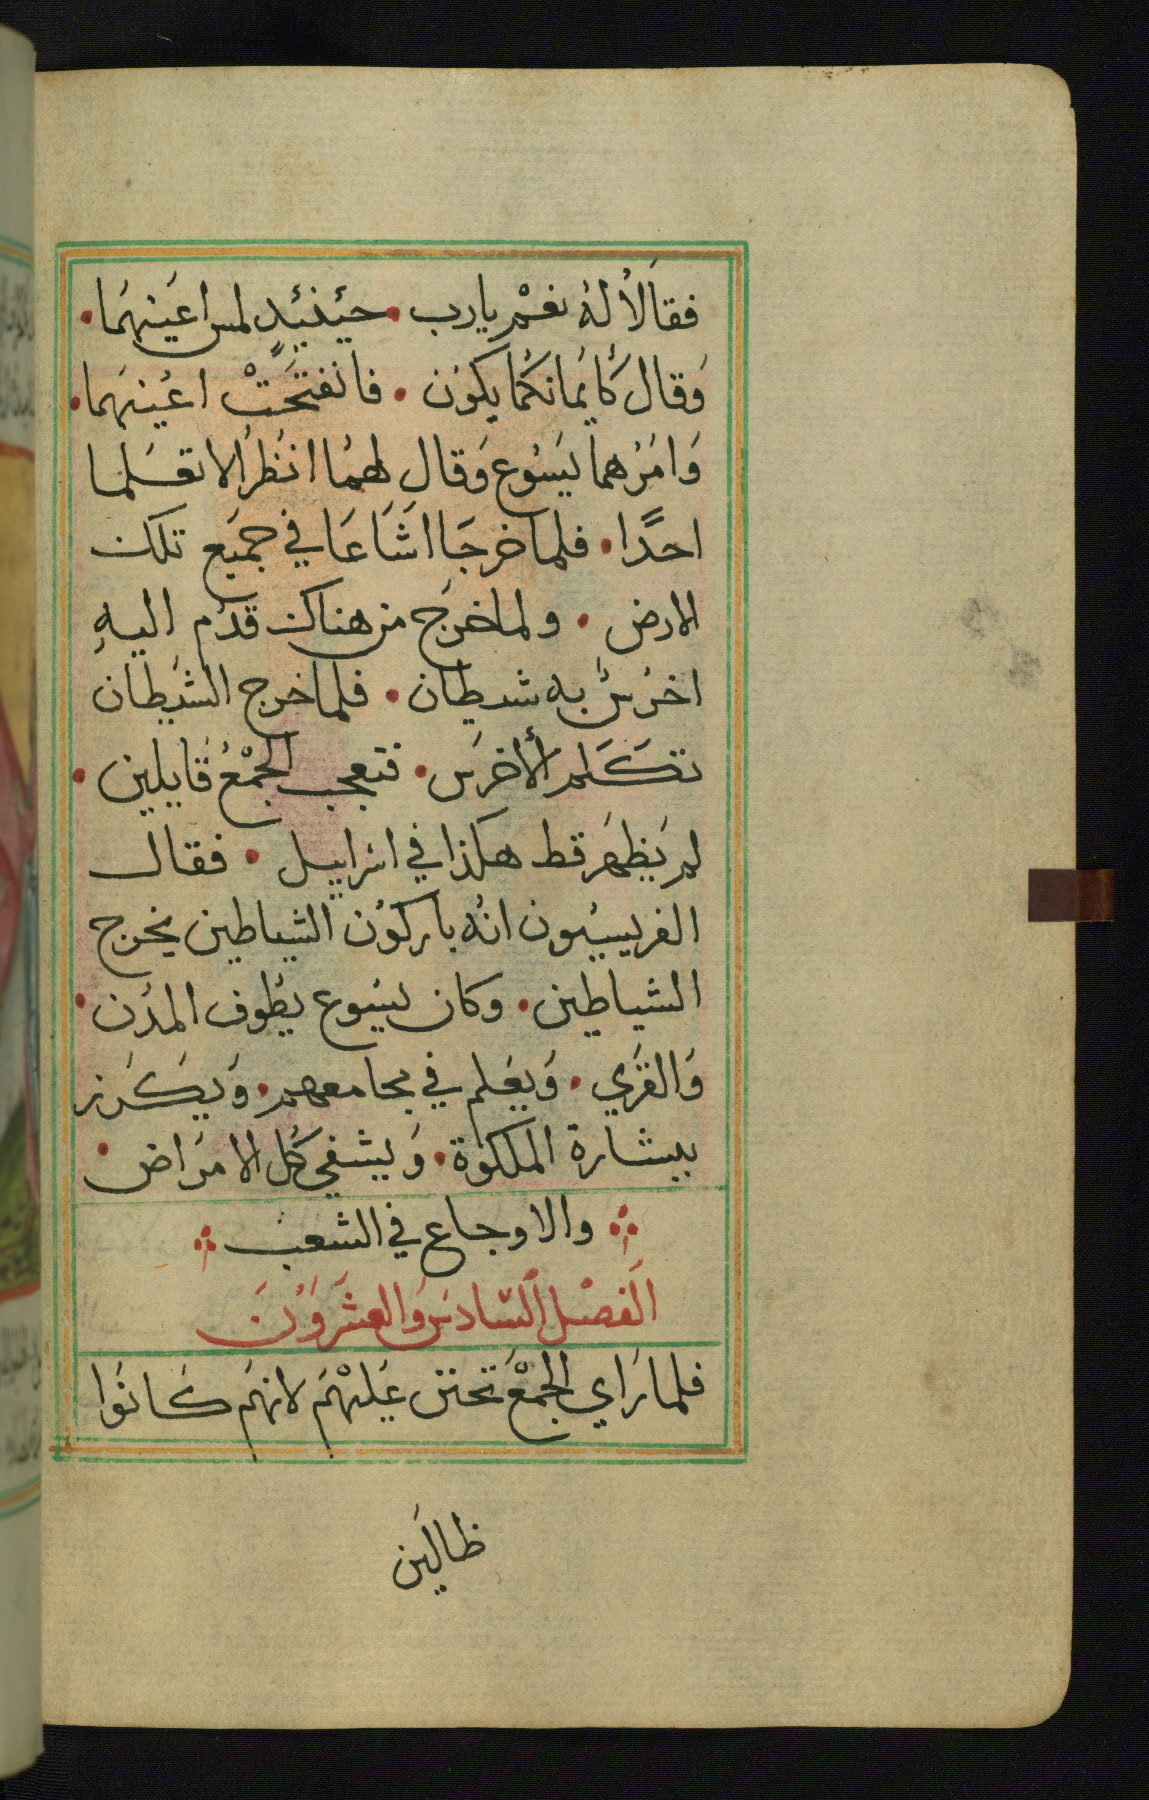 فقالا له نعم يا رب • حينئيذٍ لمس اعينهما •
وقال كايمانكما يكون • فانفتحت اعينهما •
وامرهما يسوع وقال لهما انظرا لا تعلما
احدًا • فلما خرجا اشاعا في جميع تلك
الارض • ولما خرج من هناك قدم اليهِ
اخرس به شيطان • فلما خرج الشيطان
تكلم الأخرس • فتعجب الجمْعُ قايلين •
لم يظهر قط هكذا في اسراييل • فقال
الفريسيون انه باركون الشياطين يخرج
الشياطين • وكان يسوع يطوف المدن •
والقري • ويعلم في مجامعهم • ويكرز
ببشارة الملكوة • ويشفي كل الامراض •
والاوجاع في الشعب
الفصل السادس والعشرون
فلما راي الجمْع تحنن عليهْم لانهم كانوا
ظالين